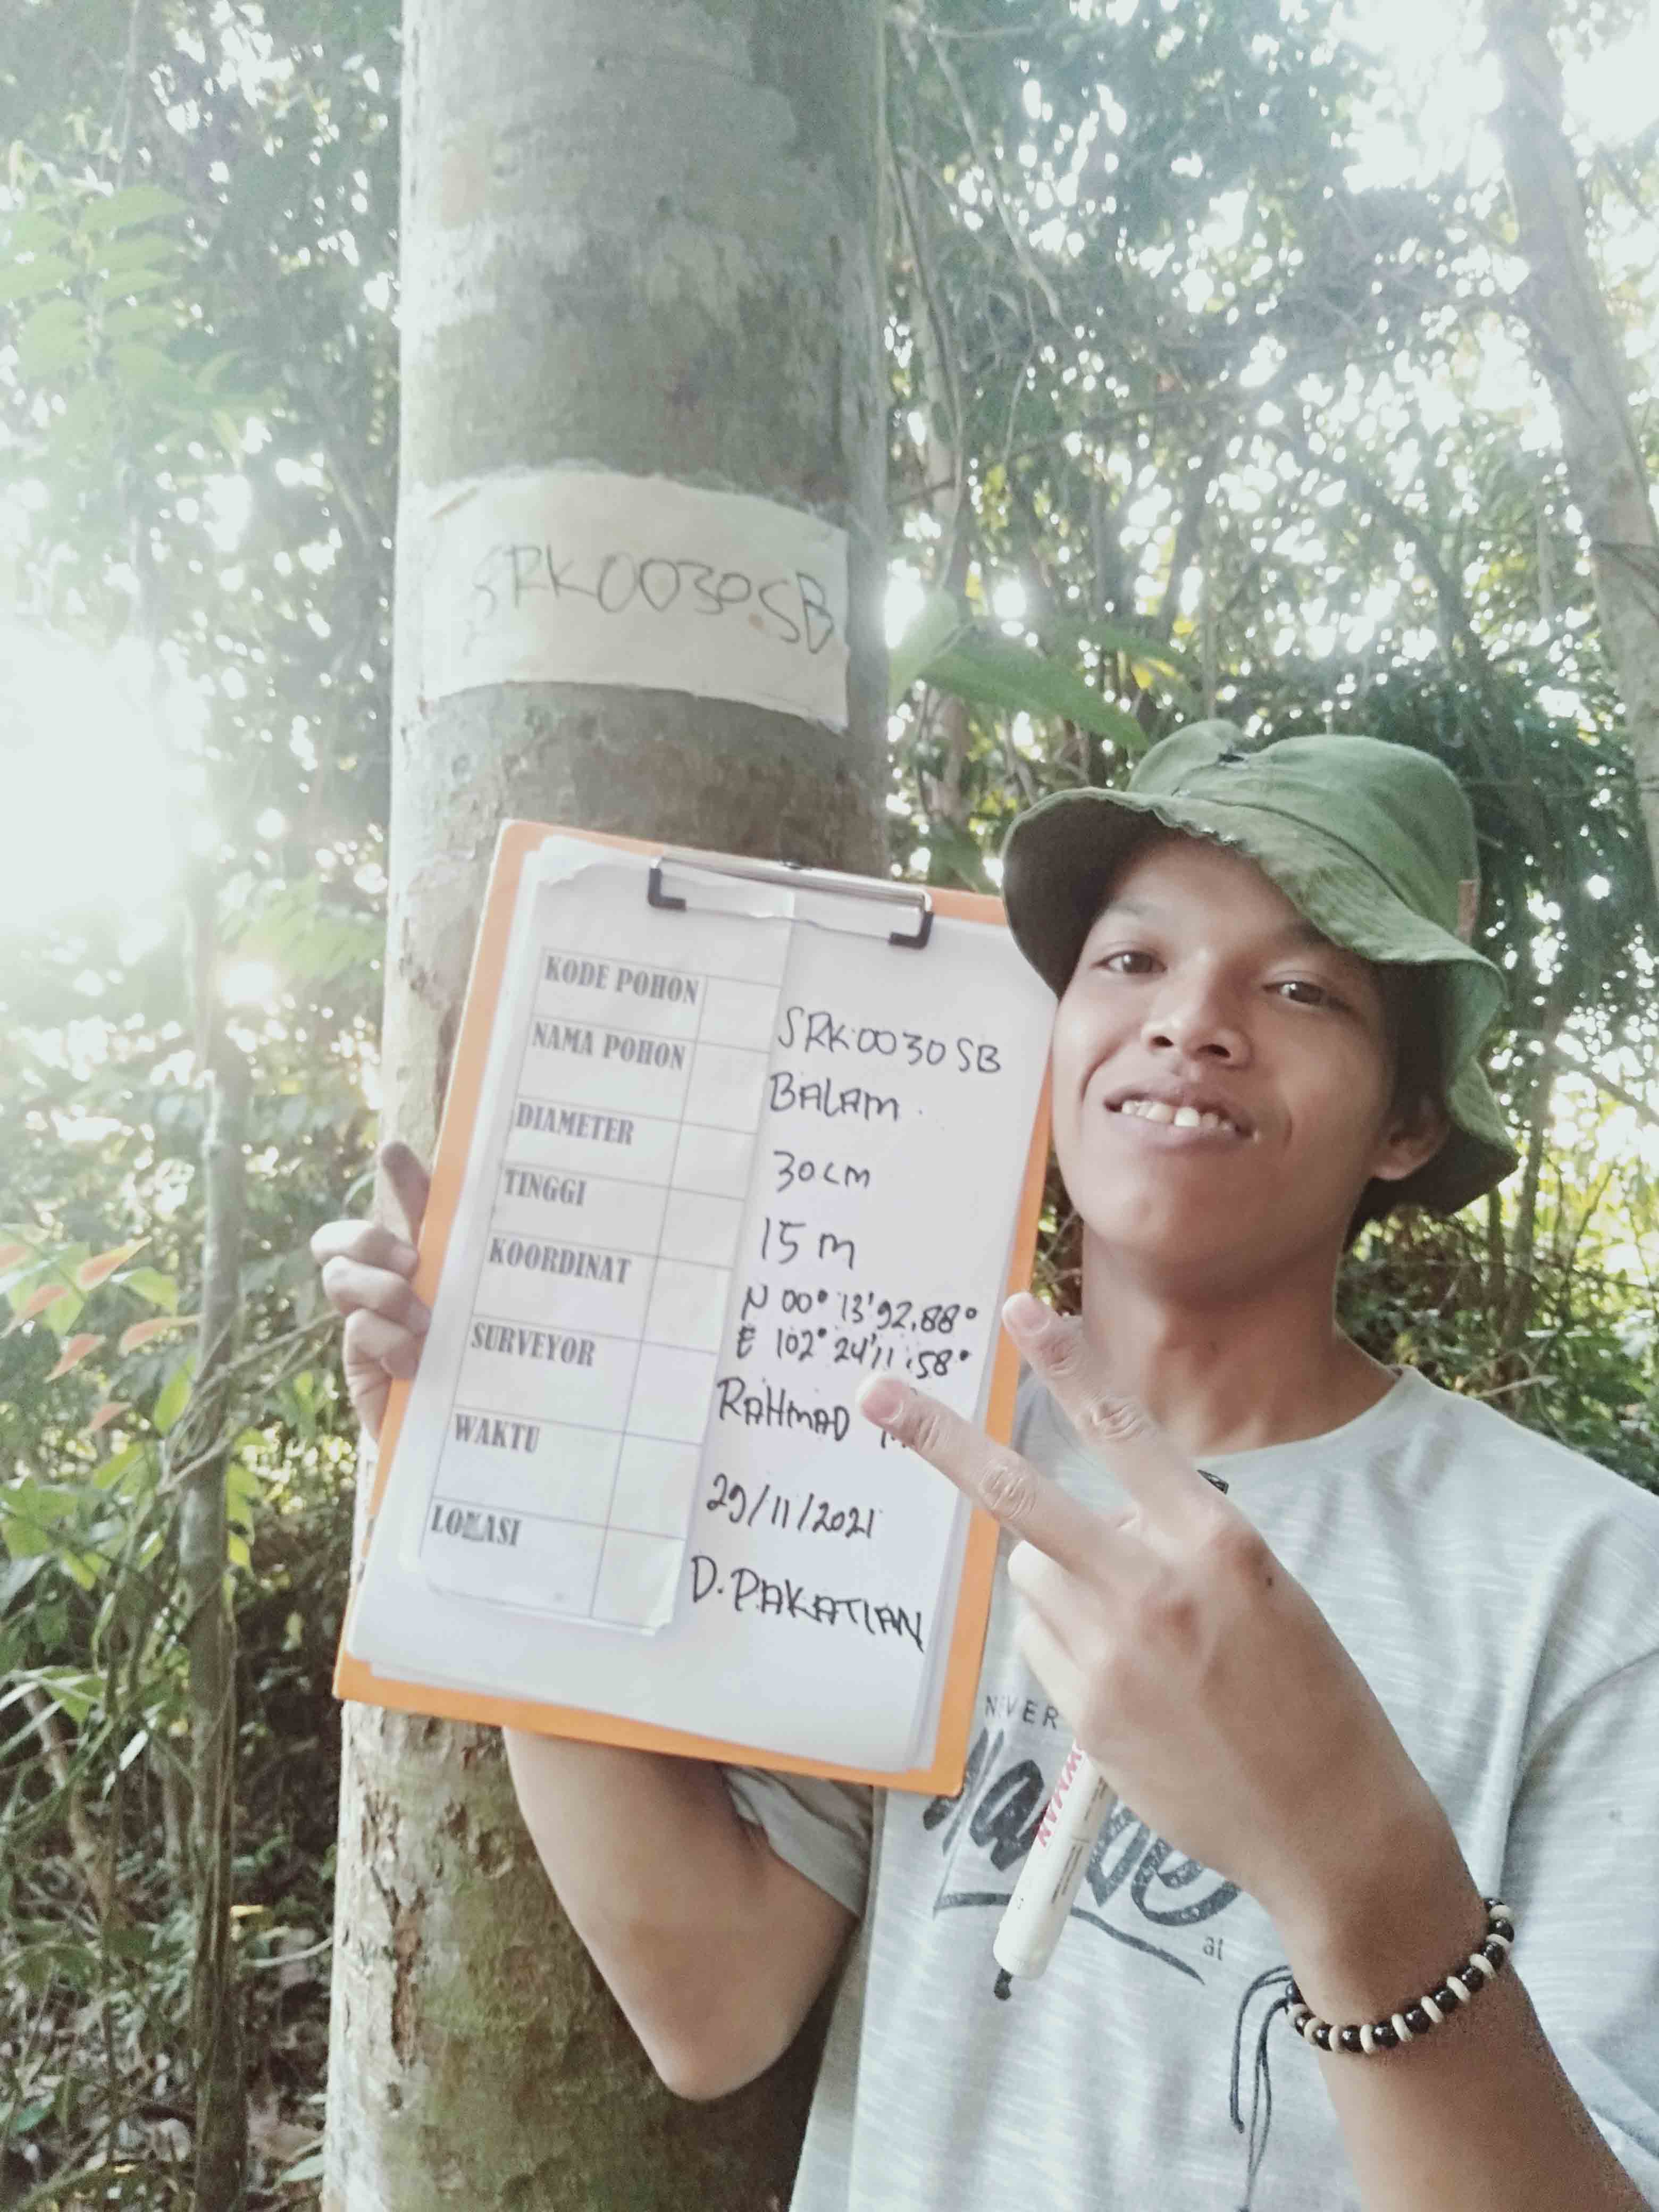 SRK0030SB
KODE POHON SRK0030SB
NAMA POHON BALAM
DIAMETER 30 cm
TINGGI 15 m
KOORDINAT N 00° 13' 92.88°
E 102° 24' 11.58°
SURVEYOR RAHMAD
WAKTU 29/11/2021
LOKASI D. PAKATIAN
NEVER
at
SNOWMAN